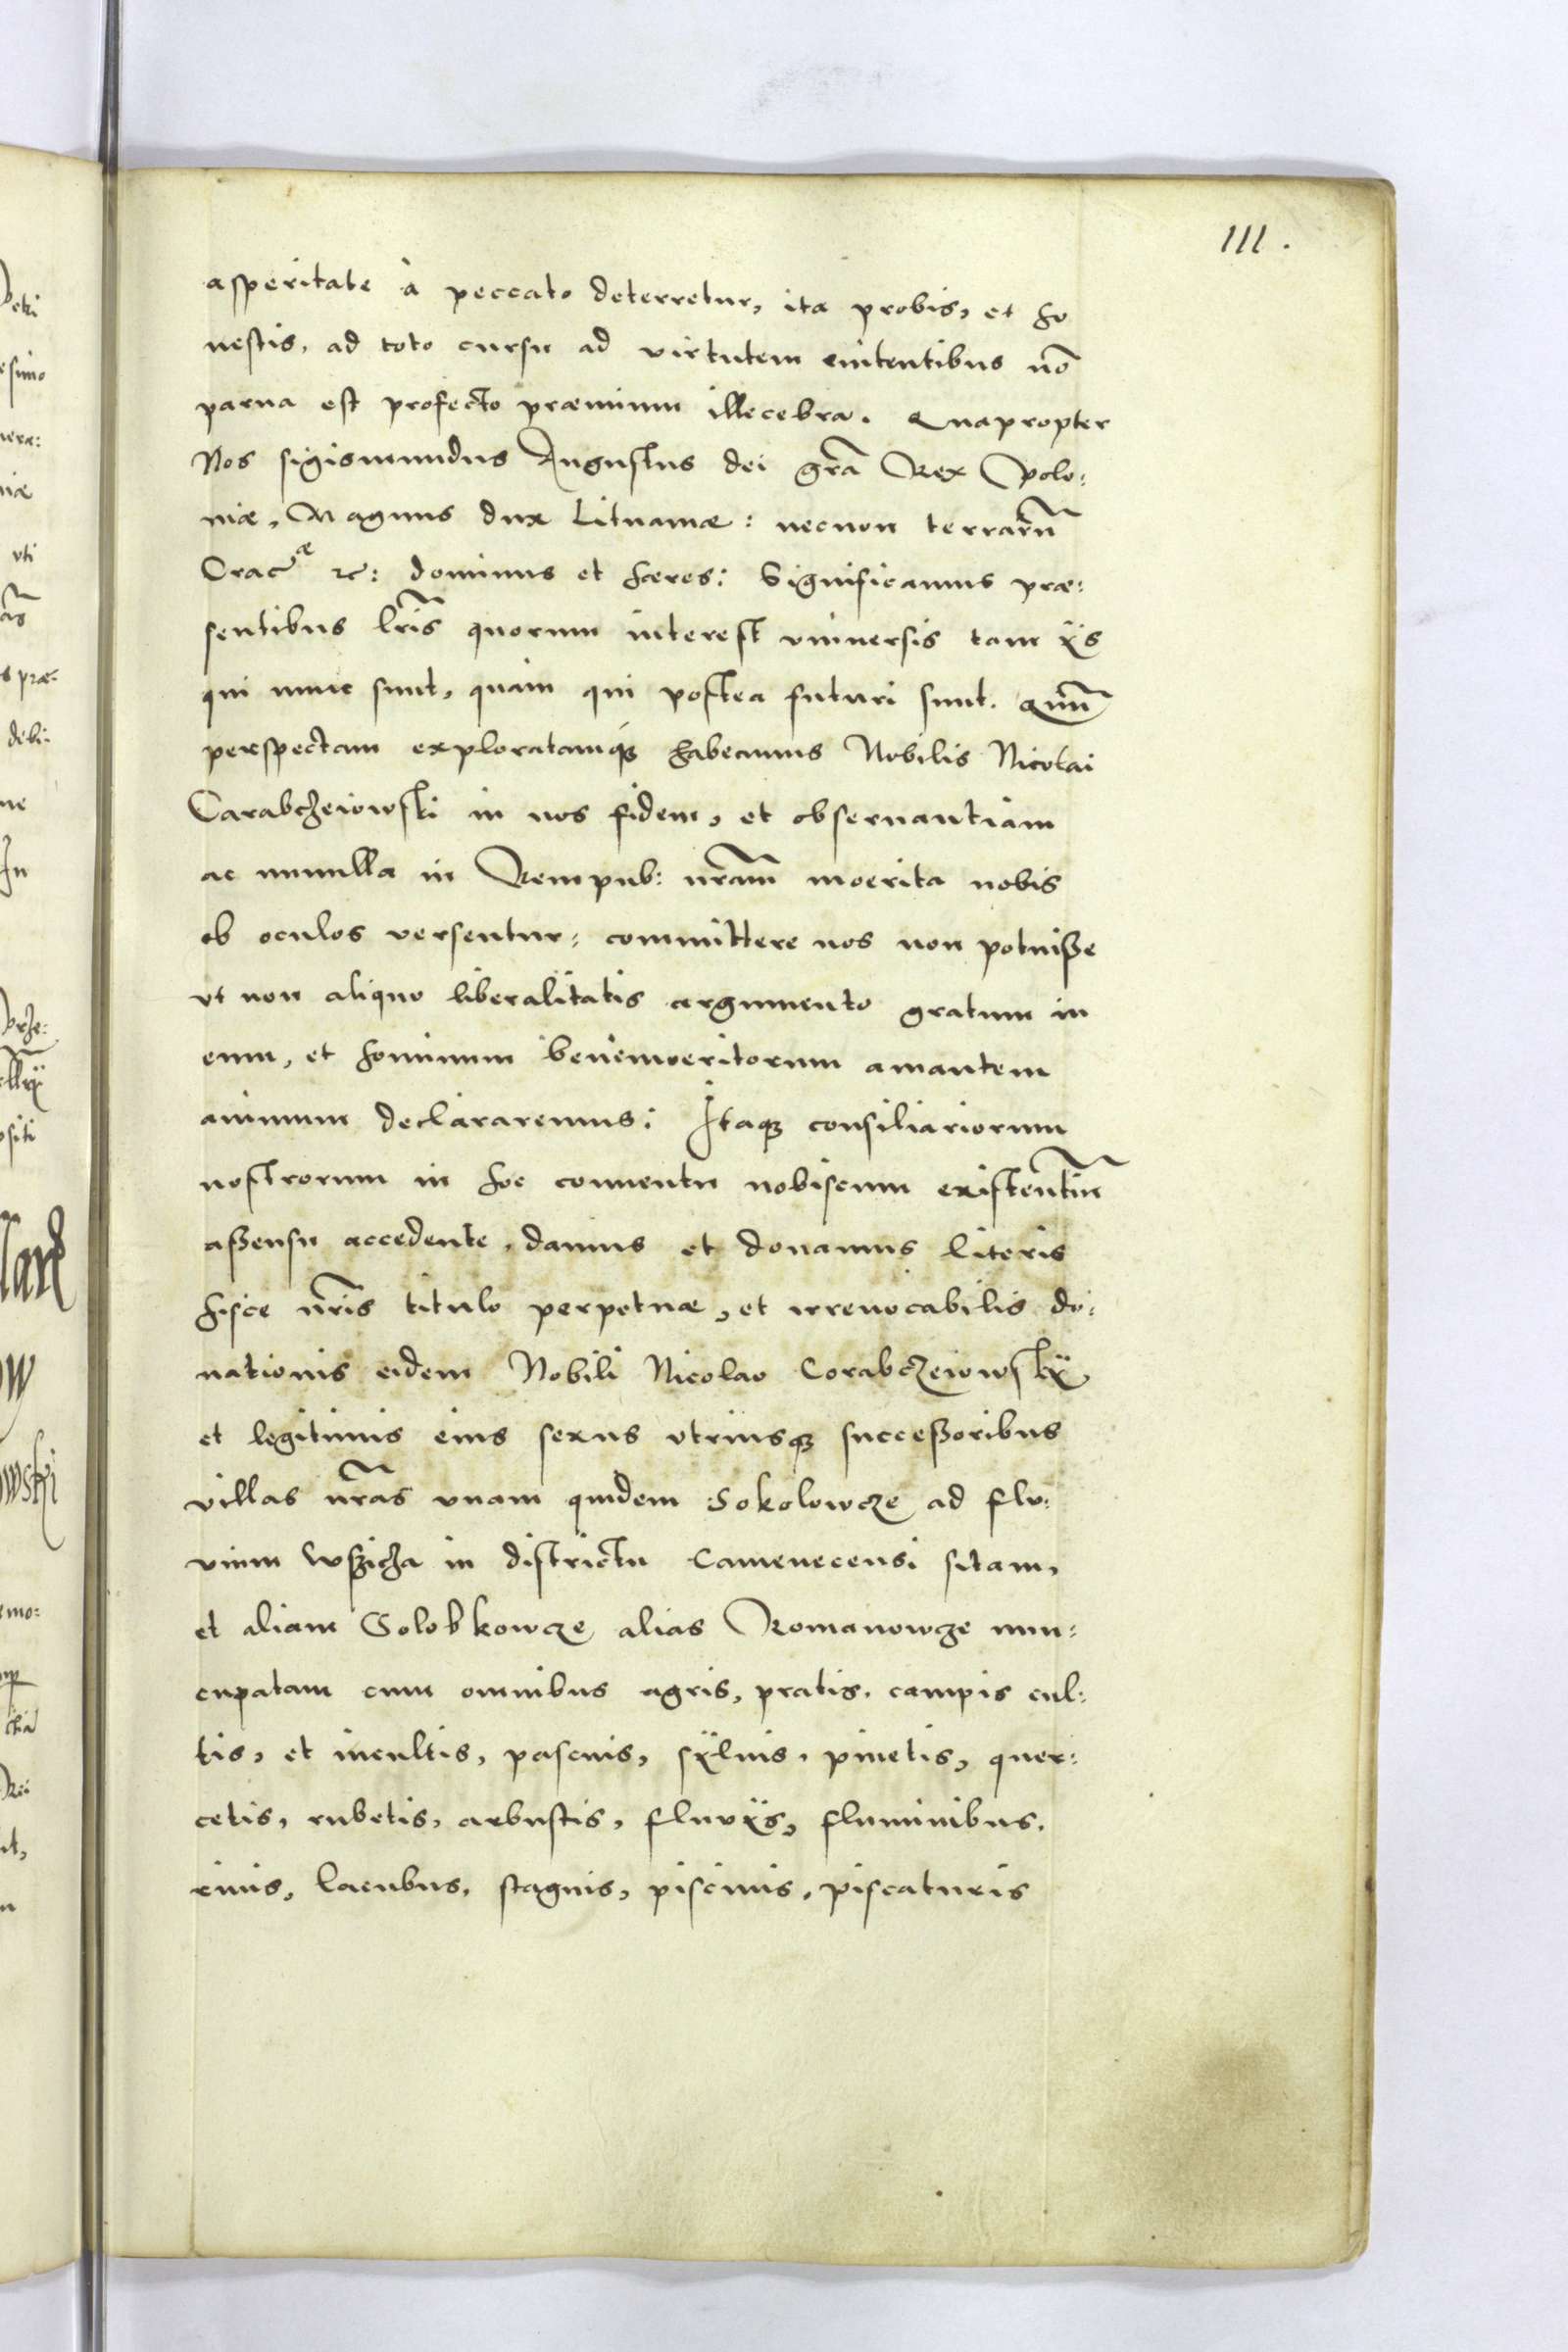 111.
asperitate à peccato deterretur, ita probis, et ho
nestis, ad toto cursu ad virtutem enitentibus nō
parua est profecto præmium illecebra. Quapropter
Nos sigismundus Augustus dei grā Rex Polo:
niæ, Magnus dux Lituaniæ: necnon terrarū
Cracæ etc: dominus et hæres: Significamus præ:
sentibus lris̄ quorum interest vniuersis tam ijs
qui nunc sunt, quàm qui postea futuri sunt. Quū
perspectam exploratamq́ȝ habeamus Nobilis Nicolai
Carabcżeiowski in nos fidem, et obseruantiam
ac nonulla in Rempub: nrām moerita nobis
ob oculos versentur: committere nos non potuiße
vt non aliquo liberalitatis argumento gratum in
eum, et hominum benèmoeritorum amantem
animum declararemus: Itaqȝ consiliariorum
nostrorum in hoc conuentu nobiscum existentiū
aßensu accedente, damus et donamus literis
hisce nrīs titulo perpetuæ, et irreuocabilis do:
nationis eidem Nobili Nicolao Corabczeiowskÿ
et legitimis eius sexus vtriusqȝ succeßoribus
villas nrās vnam quidem Sokolowcze ad flu:
uium Wszicza in districtu Camenecensi sitam,
et aliam Solobkowcze alias Romanowcze nun:
cupatam cum omnibus agris, pratis, campis cul:
tis, et incultis, pascuis, sÿluis, pinetis, quer:
cetis, rubetis, arbustis, fluuijs, fluminibus,
riuis, lacubus, stagnis, piscinis, piscaturis